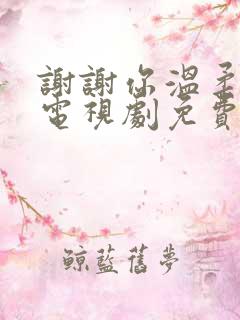 謝謝你溫柔
電視劇免費
鯨藍舊夢